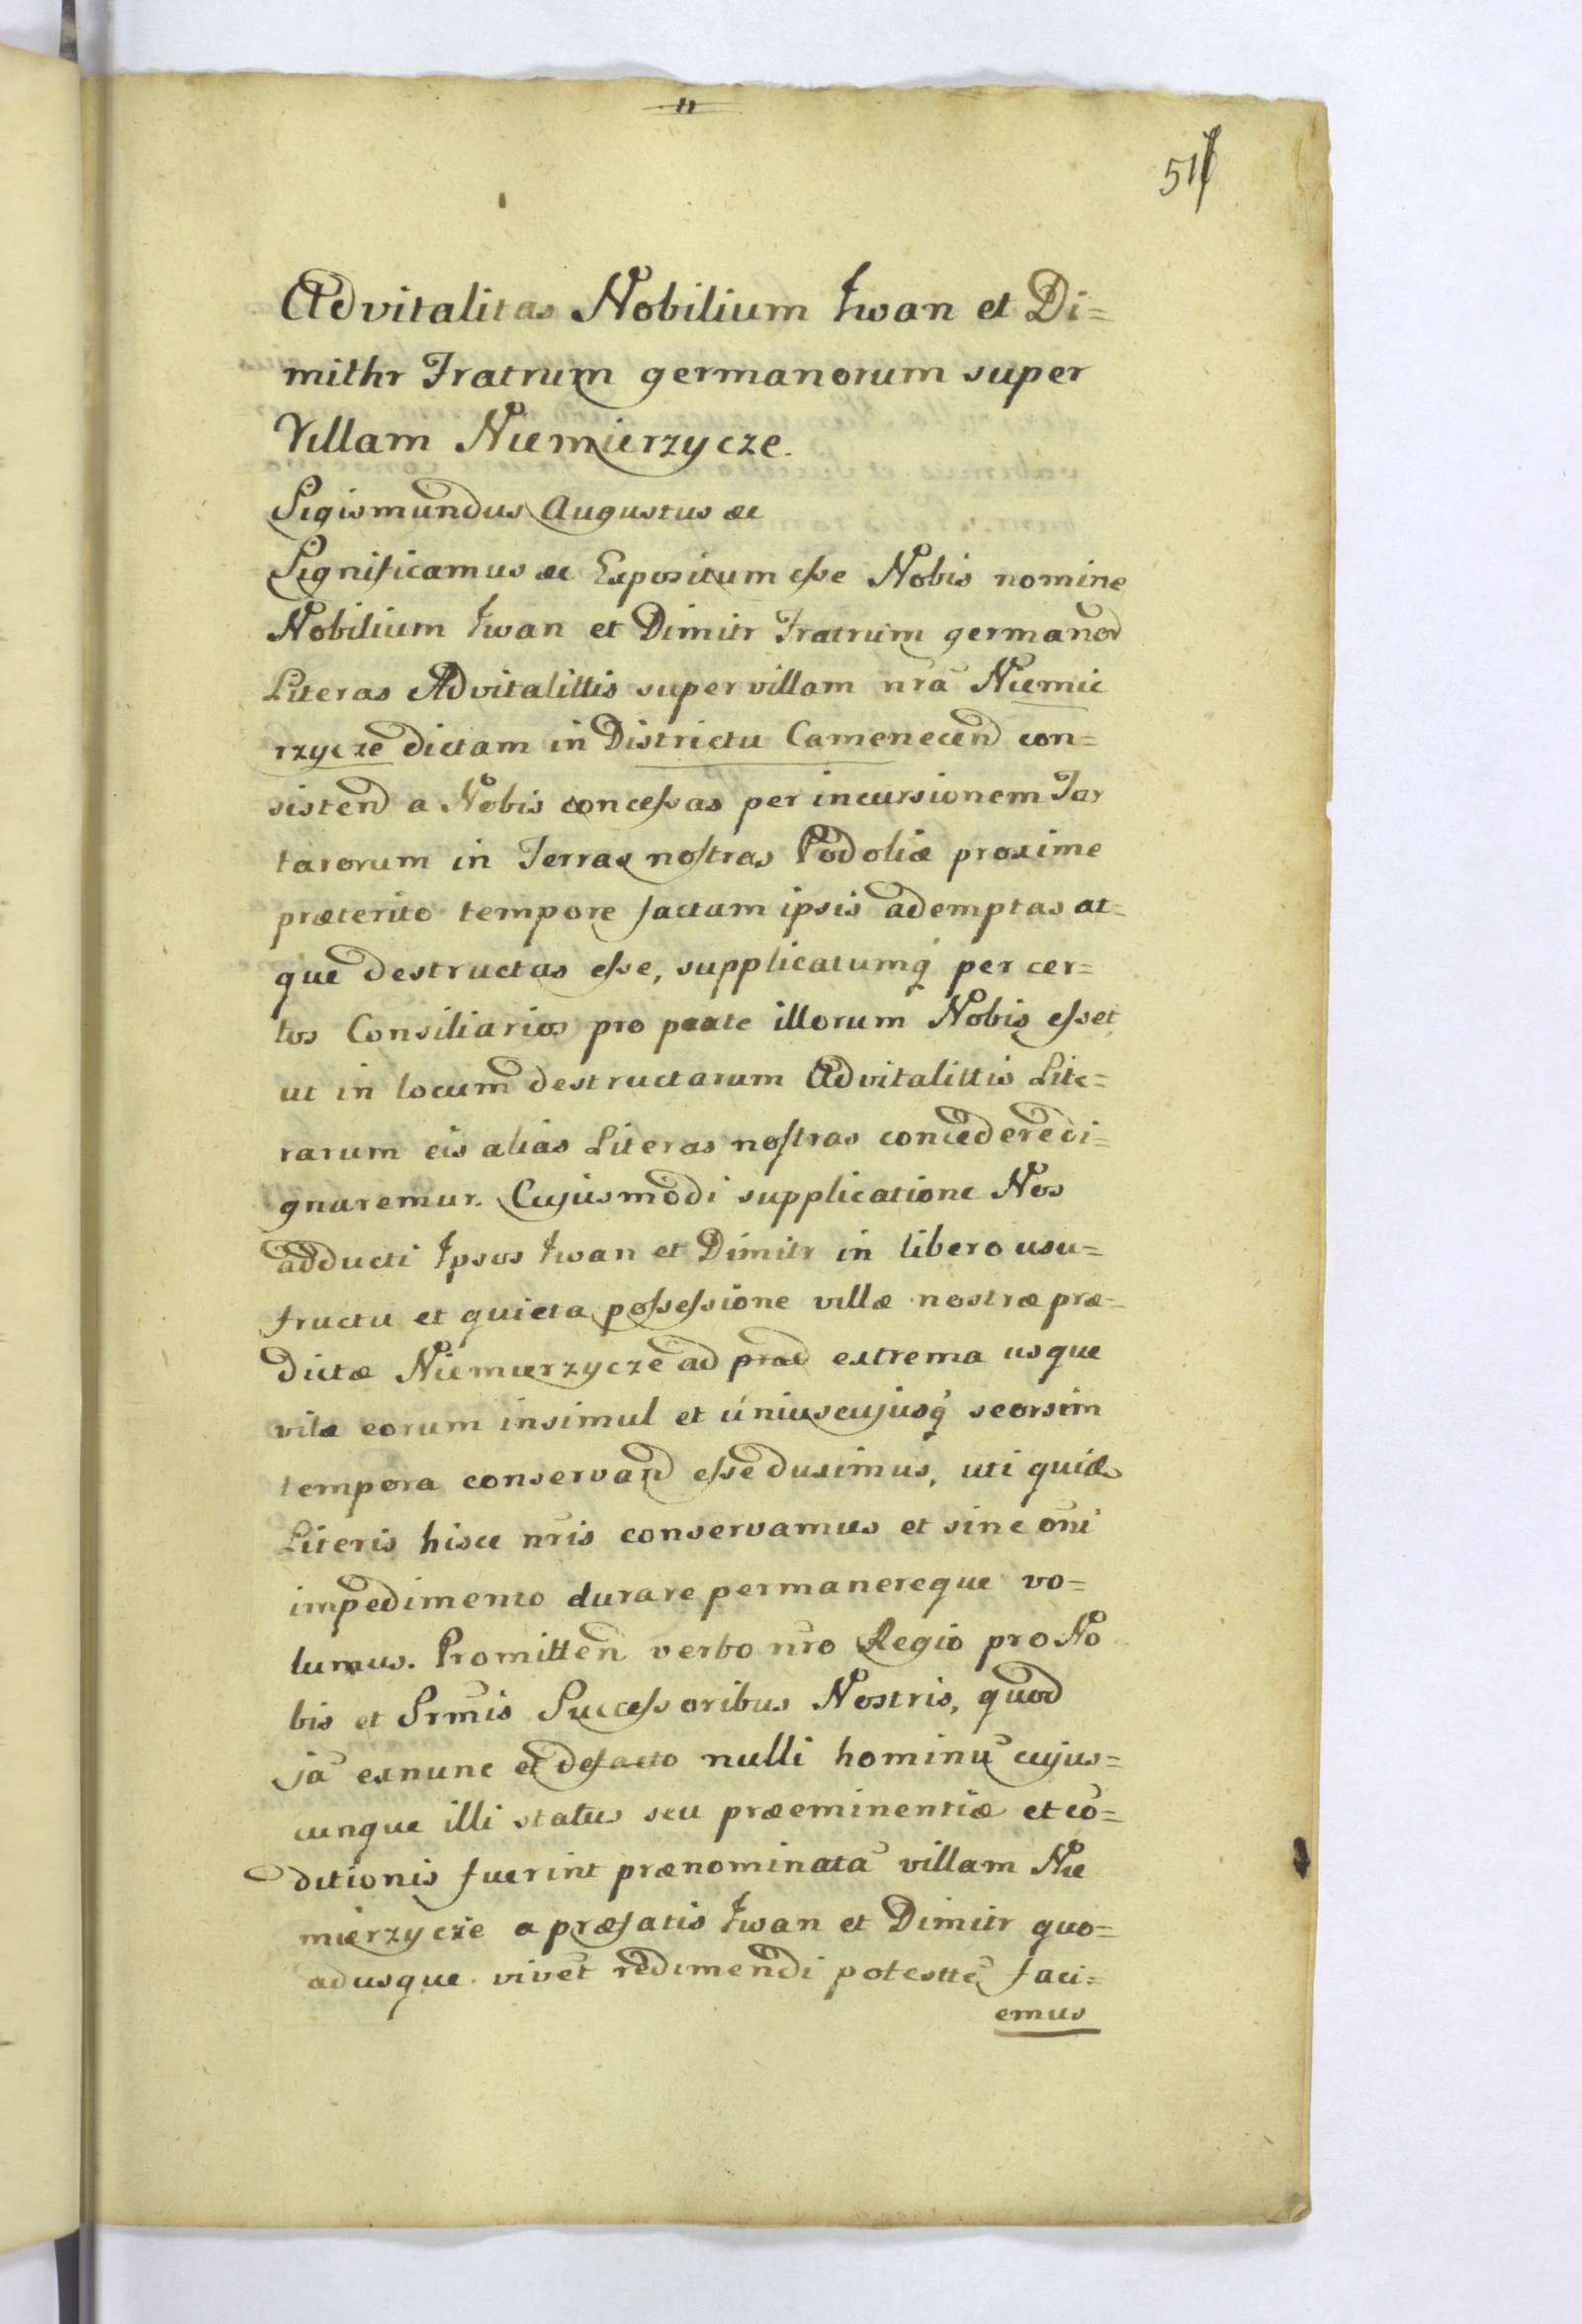 51
Advitalitas Nobilium Iwan et Di=
mithr Fratrum germanorum super
Villam Niemierzycze.
Sigismundus Augustus &c
Significamus &c Expositum esse Nobis nomine
Nobilium Iwan et Dimitr Fratrum germanor
Literas Advitalittis super villam nrã Niemie
rzycze dictam in Districtu Camenecen con=
sisten a Nobis concessas per incursionem Tar
tarorum in Terras nostras Podoliæ proxime
præterito tempore factam ipsis ademptas at=
que destructas esse, supplicatumq́ per cer=
tos Consiliarios pro parte illorum Nobis esset
ut in locum destructarum Advitalittis Lite=
rarum eis alias Literas nostras concedere di=
gnaremur. Cujusmodi supplicatione Nos
adducti Ipsos Iwan et Dimitr in libero usu=
fructu et quieta possessione villæ nostræ præ=
dictæ Niemierzycze ad extrema usque
vitæ eorum insimul et úniuscujusq́ seorsim
tempora conservand esse duximus, uti quid
Literis hisce nr̃is conservamus et sine om̃i
impedimento durare permanereque vo=
lumus. Promitten verbo nr̃o Regio pro No
bis et Srm̃is Successoribus Nostris, quod
jã exnunc et defacto nulli hominũ cujus=
cunque illi status seu præeminentiæ et cõ=
ditionis fuerint prænominatã villam Nie
mierzycze a præfatis Iwan et Dimitr quo=
adusque vivẽt redimendi potesttẽ faci=
emus